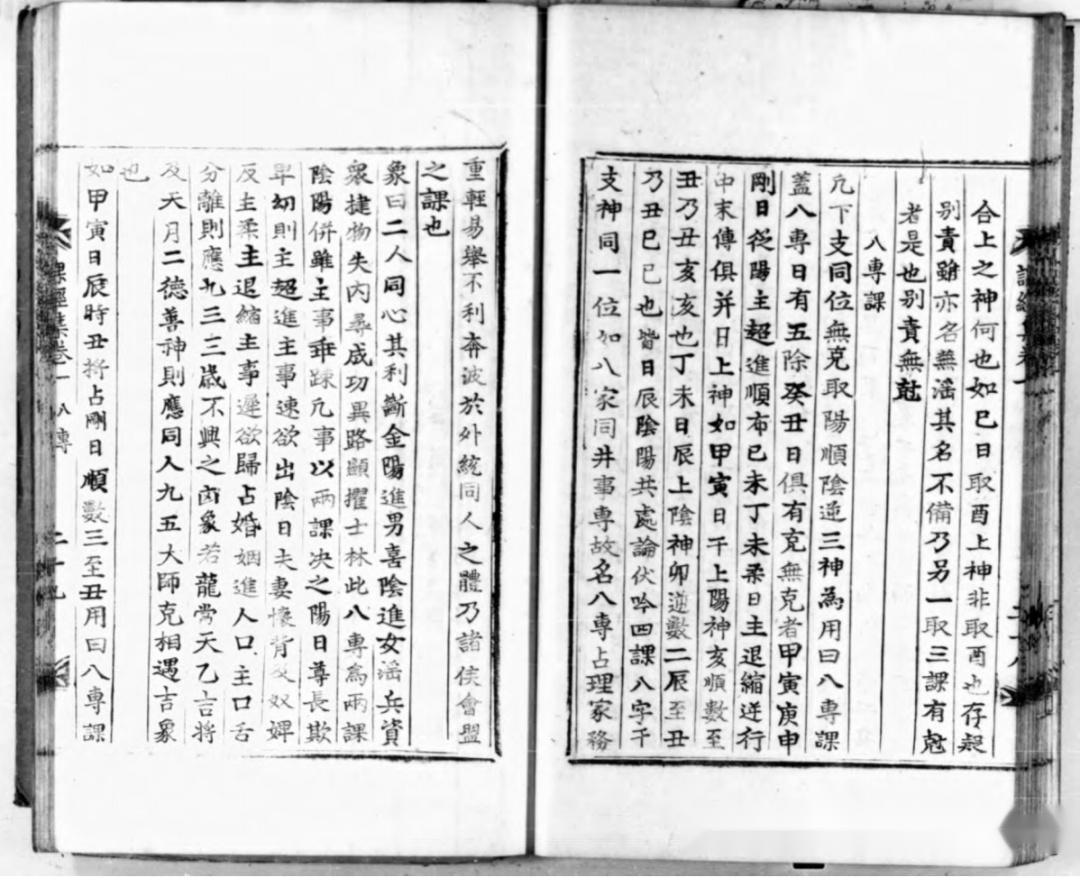 合上之神何也如巳日取酉上神非取酉也存疑
别責雖亦名蕪滛其名不備乃另一取三課有尅
者是也别責無尅
八專課
凢下支同位無克取陽順隂逆三神為用曰八專課
盖八專日有五除癸丑日俱有克無克者甲寅庚申
剛日從陽主超進順布已未丁未柔日主退縮逆行
中末傳俱并日上神如甲寅日干上陽神亥順數至
丑乃丑亥亥也丁未日辰上隂神卯逆數二辰至丑
乃丑巳已也皆日辰隂陽共處論伏吟四課八字干
支神同一位如八家同井事專故名八專占理家務
重輕易舉不利奔波於外統同人之體乃諸侯會盟
之課也
象曰二人同心其利斷金陽進男喜隂進女滛兵資
衆捷物失内尋成功異路顯擢士林此八專為兩課
隂陽併雖主事乖踈凢事以兩課决之陽日尊長欺
卑幼則主超進主事速欲出隂日夫妻懷背及奴婢
反主柔主退縮主事遲欲歸占婚姻進人口主口舌
分離則應九三三歲不興之卤象若龍常天乙吉將
及天月二德善神則應同人九五大師克相遇吉象
也
如甲寅日辰時丑將占剛日順數三至丑用曰八專課
課經集卷一 八專 二十九